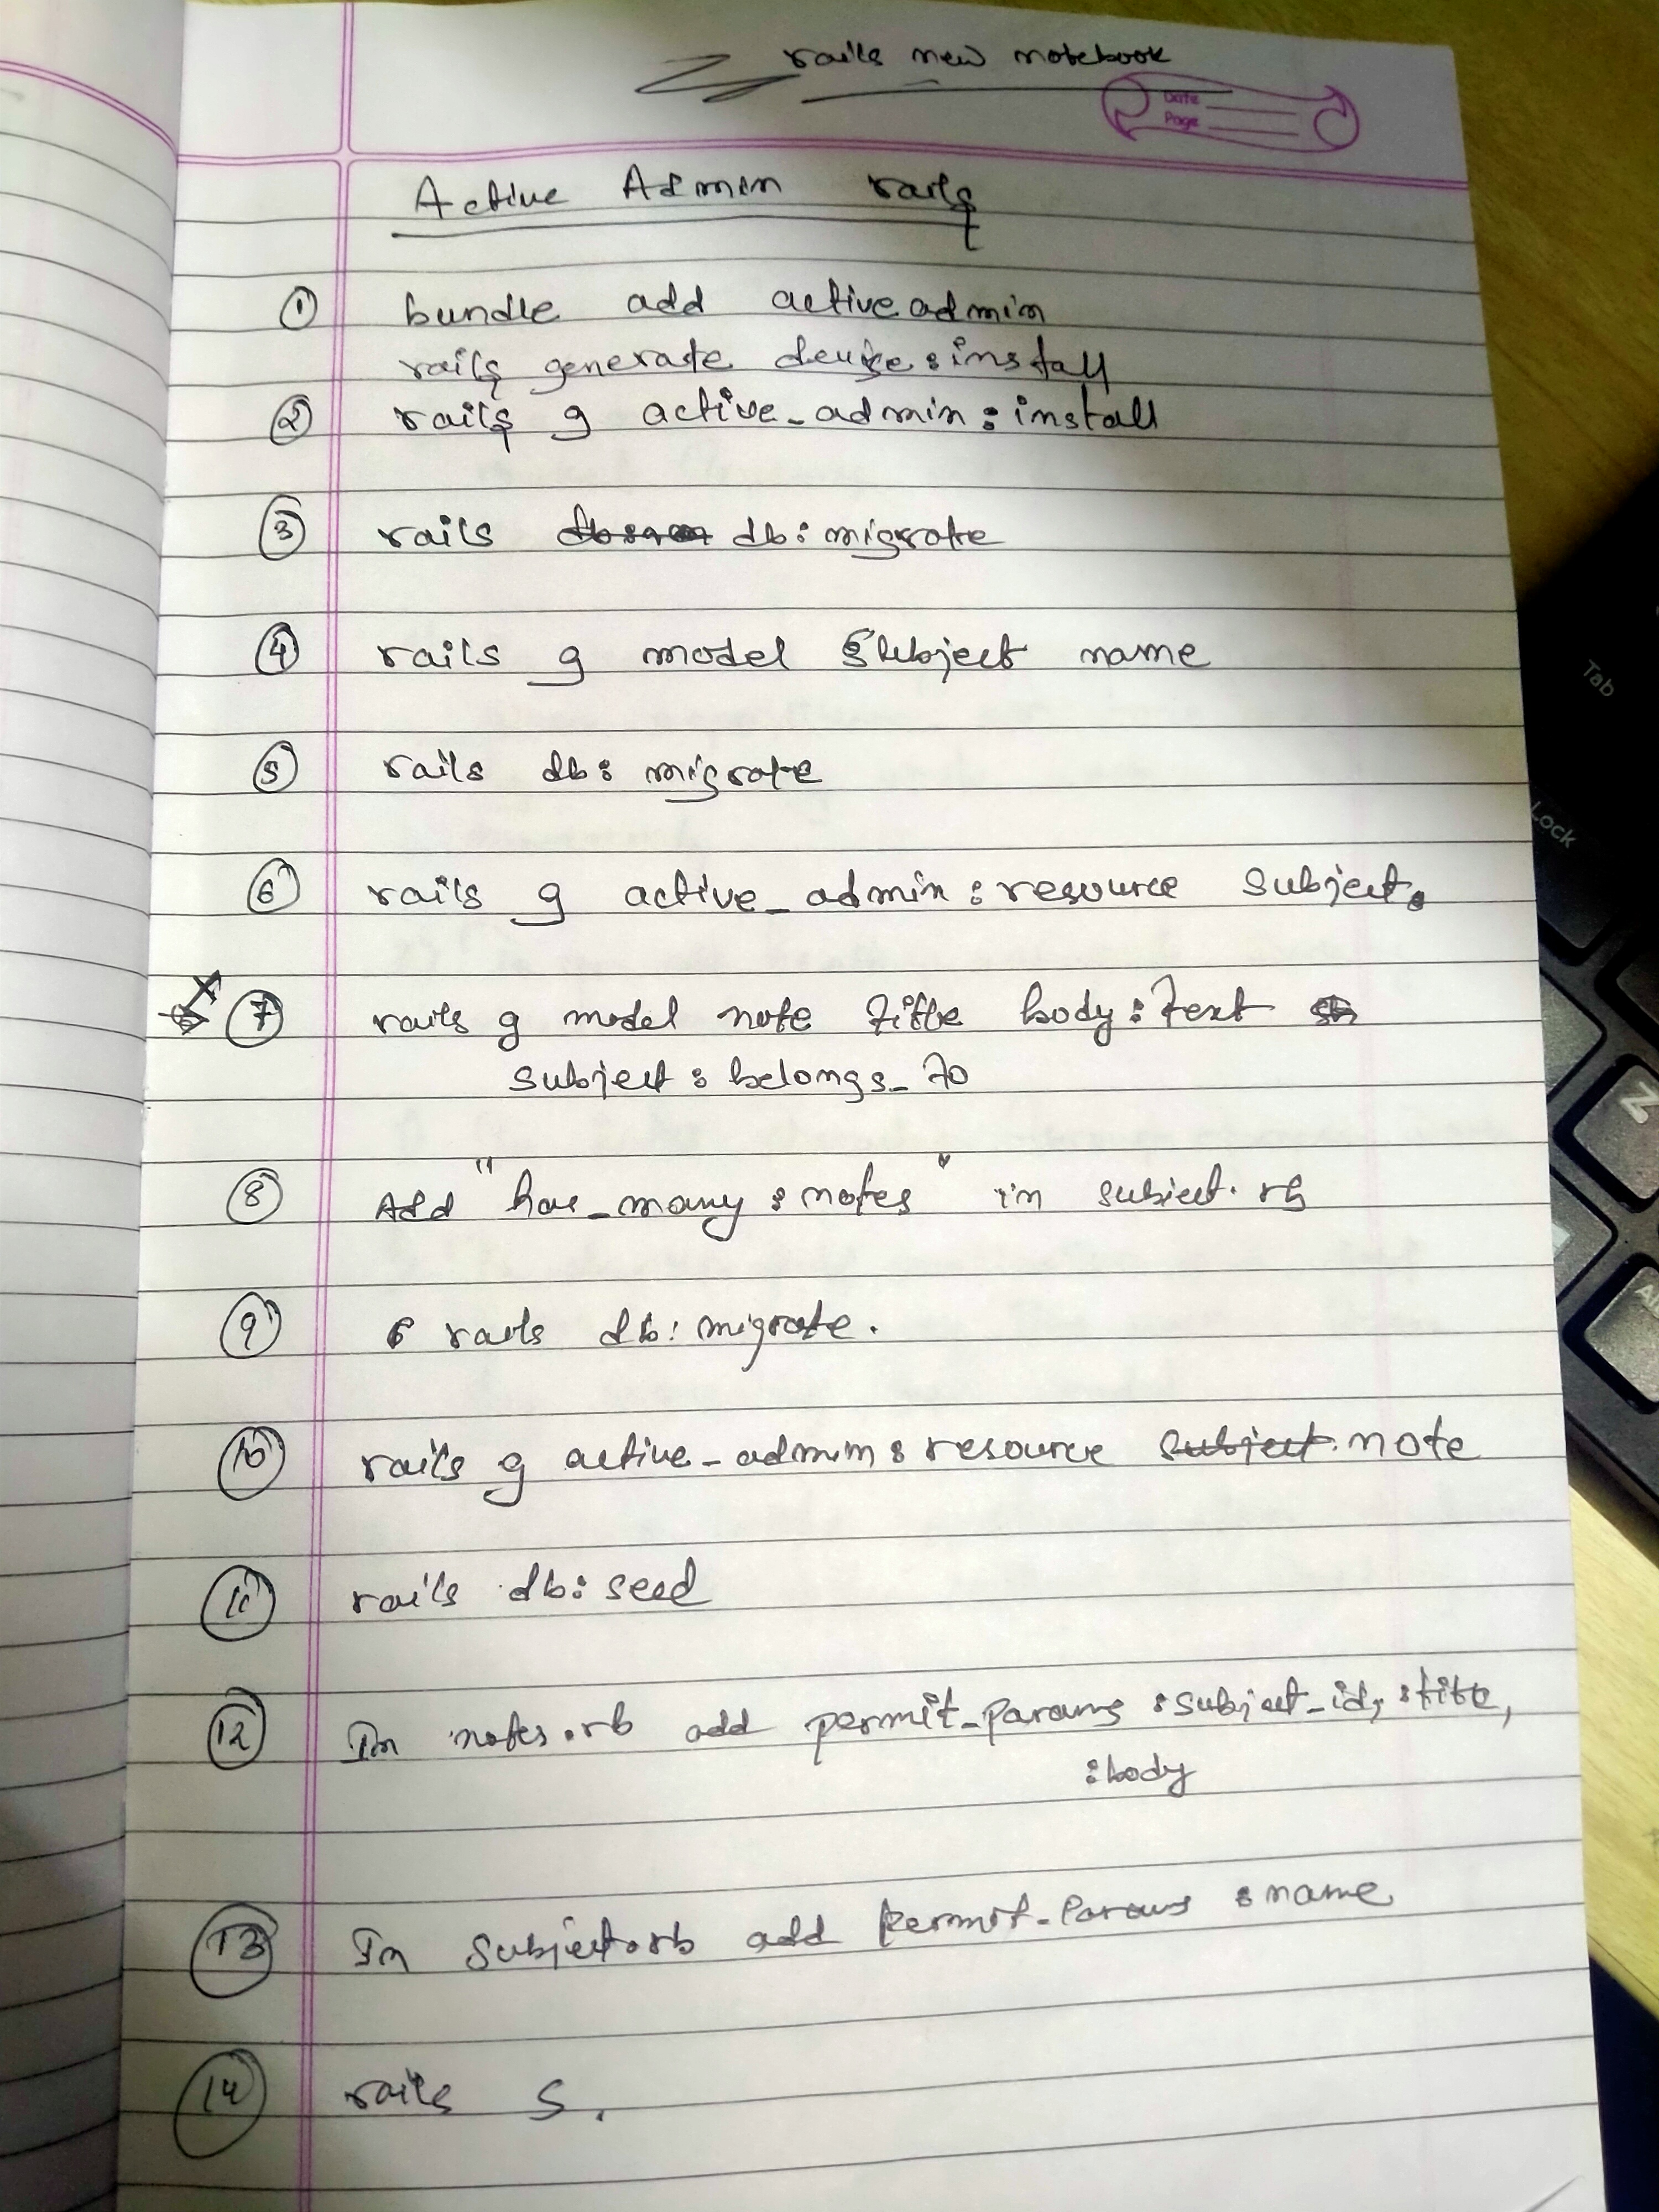 rails new notebook
Date
Page
Active Admin rails
① bundle add activeadmin
rails generate devise:install
② rails g active_admin:install
③ rails db:migrate
④ rails g model Subject name
⑤ rails db:migrate
⑥ rails g active_admin:resource Subject.
⑦ rails g model note title body:text
subject:belongs_to
⑧ Add "has_many :notes" in subject.rb
⑨ rails db:migrate.
⑩ rails g active_admin:resource note
⑪ rails db:seed
⑫ In notes.rb add permit_params :subject_id, :title,
:body
⑬ In Subject.rb add permit_params :name
⑭ rails s.
Tab
Lock
Z